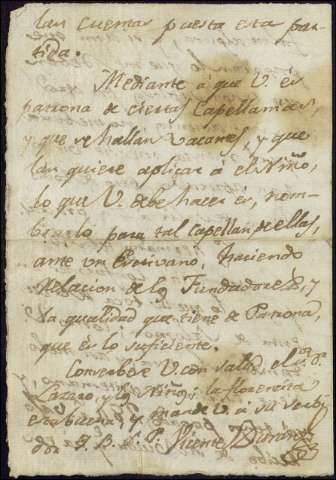 las cuentas puesta esta par-
tida.
Mediante á que V. es
patrona de ciertas Capellanias,
y que se hallan vacantes, y que
las quiere aplicar á el Niño,
lo que V. debe hacer es, nom-
brarlo para tal Capellan de ellas,
ante un Escrivano, haciendo
relacion de los Fundadores, y
la qualidad que tiene de Patrona,
que es lo suficiente.
Conserbese V. con salud, el
Lazaro, y los Niños, la florencia
es buena, y mande V. á su serbi-
dor Q. B. S. P. Vicente